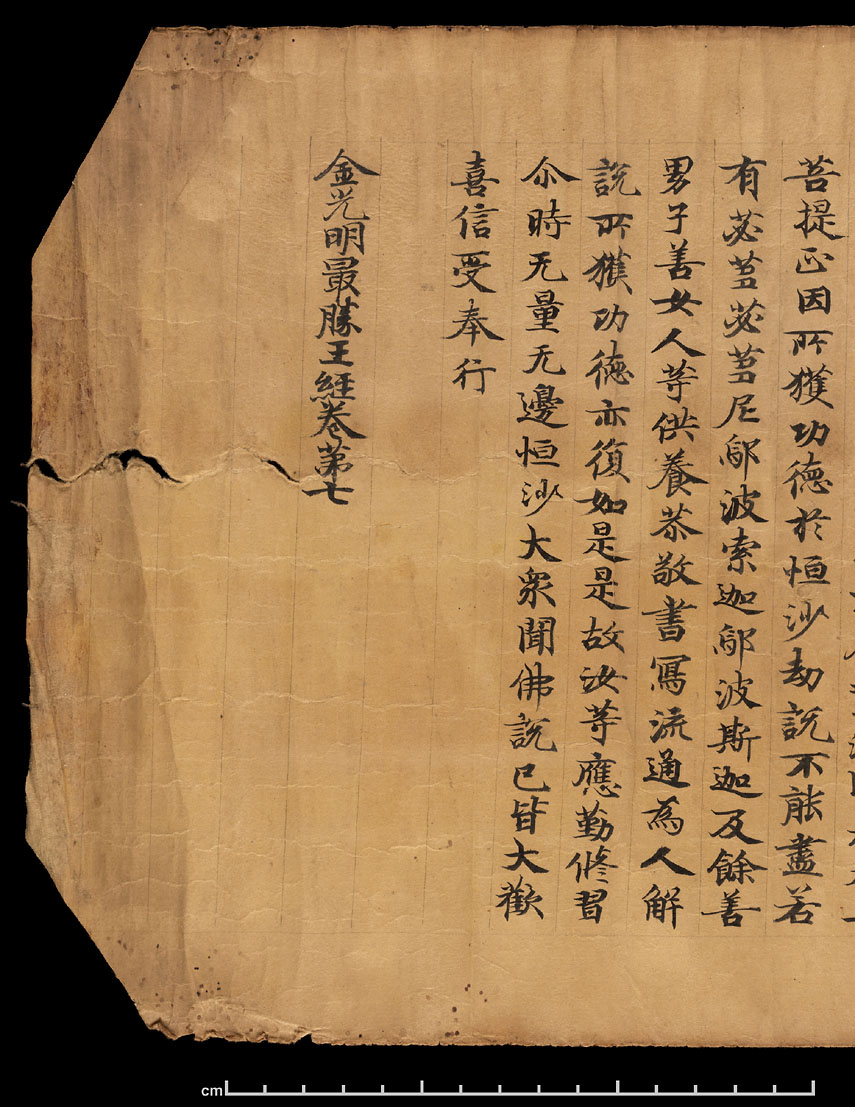 菩提正因所獲功德於恒沙劫說不能盡若
有苾蒭苾蒭尼鄔波索迦鄔波斯迦及餘善
男子善女人等供養恭敬書寫流通為人解
說所獲功德亦復如是是故汝等應勤修習
尒時无量无邊恒沙大衆聞佛說已皆大歡
喜信受奉行
金光明最勝王經卷第七
cm